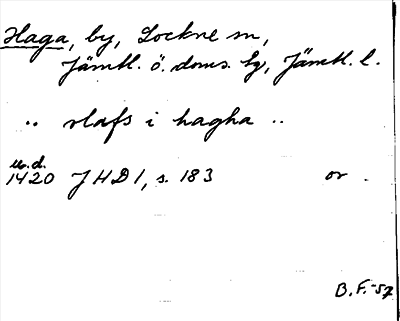 Haga, by, Lockne sn,
Jämtl. ö. doms. hg, Jämtl. l.
.. olafs i hagha ..
u.d.
1420 JHD 1, s. 183 or.
B.F.-57